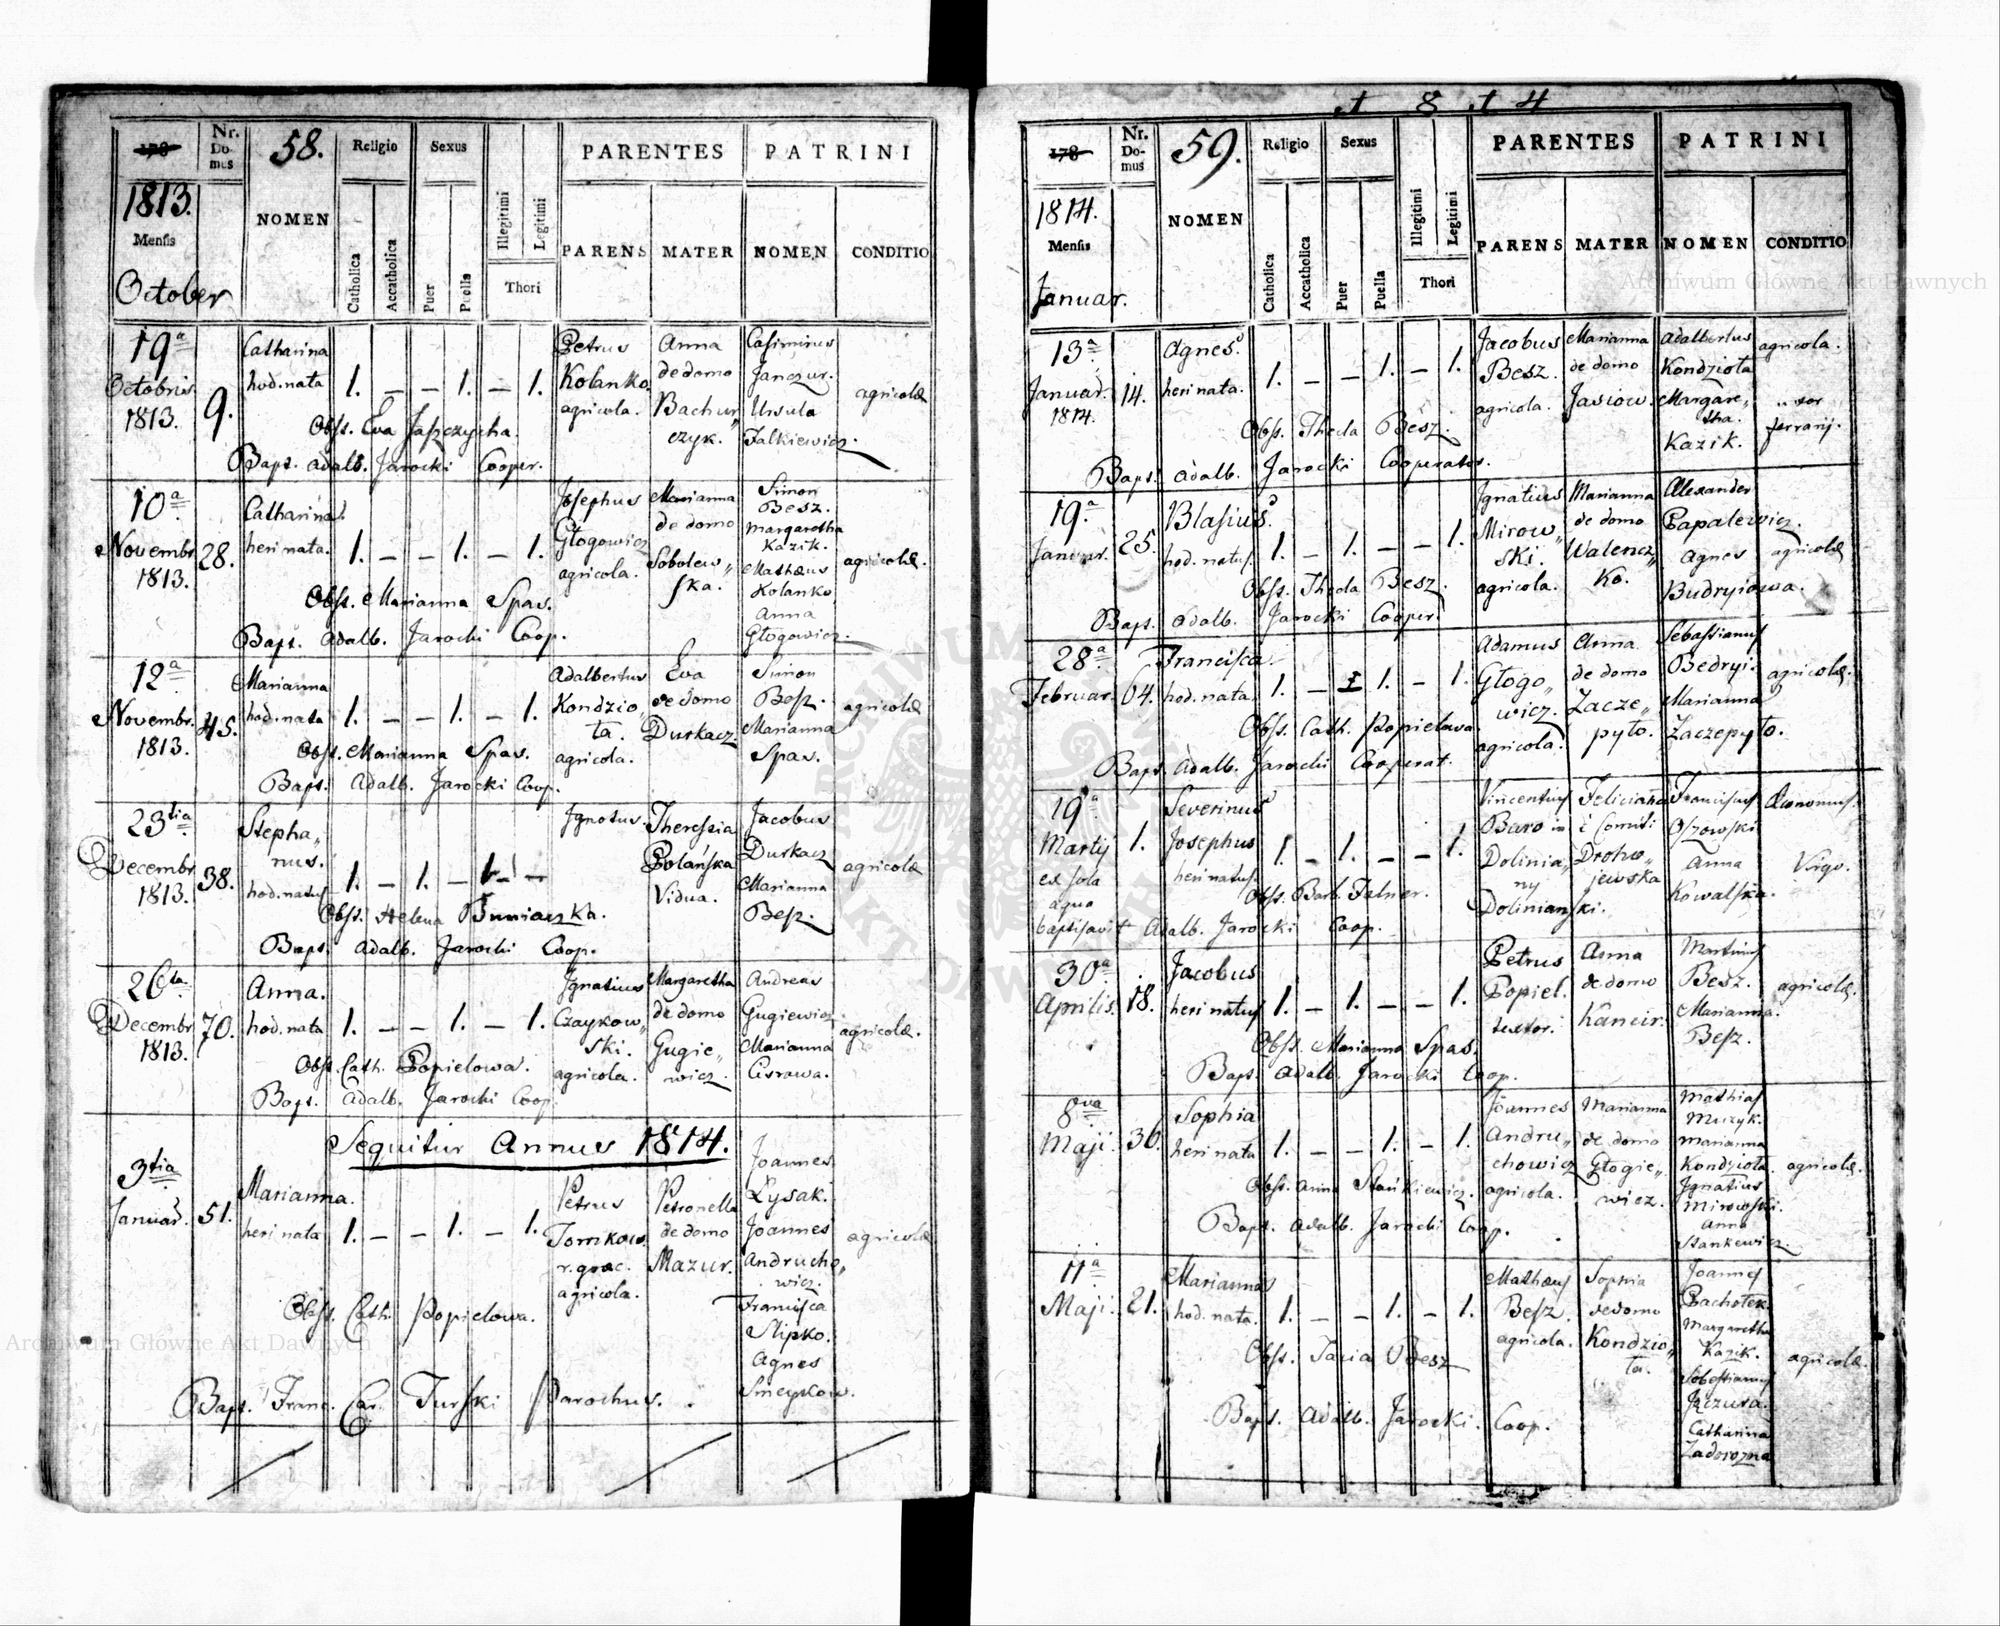 178
Nr. Domus
58.
Religio
Sexus
PARENTES
PATRINI
1813.
Mensis
October
NOMEN
Catholica
Accatholica
Puer
Puella
Illegitimi
Legitimi
Thori
PARENS
MATER
NOMEN
CONDITIO
19a Octobris 1813.
9.
Catharina hod. nata
1. – – 1. – 1.
Petrus Kolanko. agricola.
Anna de domo Bachurczyk.
Casimirus Janczur. Ursula Falkiewicz.
agricolæ
Obst. Eva
Bapt. Adalb. Jarocki Cooper.
10a Novembr. 1813.
28.
Catharina. heri nata.
1. – – 1. – 1.
Josephus Głogowicz agricola.
Marianna de domo Sobolew„ska.
Simon Besz. Margaretha Kazik. Mathæus Kolanko. Anna Głogowicz.
agricolæ.
Obst. Marianna Spas.
Bapt. Adalb. Jarocki Coop.
12a Novembr. 1813.
45.
Marianna hod. nata
1. – – 1. – 1.
Adalbertus Kondzio„ła. agricola.
Eva de domo Durkacz.
Simon Besz. Marianna Spas.
agricolæ
Obst. Marianna Spas.
Bapt. Adalb. Jarocki Coop.
23tia Decembr. 1813.
38.
Stepha„nus. hod. natus
1. – 1. – 1. –
Ignotus.
Theressia Polańska Vidua.
Jacobus Durkacz Marianna Besz.
agricolæ
Obst. Helena Buniaczka.
Bapt. Adalb. Jarocki Coop.
26ta Decembr. 1813.
70.
Anna. hod. nata
1. – – 1. – 1.
Ignatius Czaykow„ski. agricola.
Margaretha de domo Gugie„wicz.
Andreas Gugiewicz. Marianna
agricolæ.
Obst. Cath. Popielowa.
Bapt. Adalb. Jarocki Coop.
Sequitur Annus 1814.
3tia Januar.
51.
Marianna. heri nata
1. – – 1. – 1.
Petrus Tomkow. r. græc. agricola.
Petronella de domo Mazur.
Joannes Łysak. Joannes Andrucho„wicz. Francisca Slipko. Agnes
agricolæ
Obst. Cath. Popielowa.
Bapt. Franc. Car. Turski Parochus.
178
Nr. Domus
59.
Religio
Sexus
PARENTES
PATRINI
1814.
Mensis
Januar.
NOMEN
Catholica
Accatholica
Puer
Puella
Illegitimi
Legitimi
Thori
PARENS
MATER
NOMEN
CONDITIO
13a Januar. 1814.
14.
Agnes. heri nata.
1. – – 1. – 1.
Jacobus Besz. agricola.
Marianna de domo Jasiow.
Adalbertus Kondzioła Margare„tha. Kazik.
agricola.
Obst. Thecla Besz.
Bapt. Adalb. Jarocki Cooperator.
19a Januar.
25.
Blasius. hod. natus.
1. – 1. – – 1.
Ignatius Mirow„ski. agricola.
Marianna de domo Walencz„ko.
Alexander Papalewicz. Agnes Budryiowa.
agricolæ
Obst. Thecla Besz.
Bapt. Adalb. Jarocki Cooper.
28a Februar.
64.
Francisca. hod. nata.
1. – 1. – 1.
Adamus Głogo„wicz. agricola.
Anna de domo Zacze„pyło.
Sebastianus Bedryi. Marianna Zaczepyło.
agricolæ.
Obst. Cath. Popielowa.
Bapt. Adalb. Jarocki Cooperat.
19a Martij
1.
Severinus Josephus heri natus.
1. – 1. – – 1.
Vincentius Baro in Dolinia„ny Dolinianski.
Feliciana è Comiti Droho„jewska
Franciscus Oszowski Anna Kowalska.
Œconomus. Virgo.
ex sola aqua baptisavit Adalb. Jarocki Coop.
Obst. Barb. Felner.
30a Aprilis.
18.
Jacobus heri natus
1. – 1. – – 1.
Petrus Popiel. textor.
Anna de domo Kancir.
Martinus Besz. Marianna. Besz.
agricolæ.
Obst. Marianna Spas.
Bapt. Adalb. Jarocki Coop.
8va Maji.
36.
Sophia heri nata
1. – – 1. – 1.
Joannes Andru„chowicz agricola.
Marianna de domo Głogie„wicz.
Mathias Muzyk. Marianna Kondzioła. Ignatius Mirowski. Anna Stankewicz.
agricolæ.
Obst. Anna Stankiewicz.
Bapt. Adalb. Jarocki Coop.
11a Maji.
21.
Marianna hod. nata.
1. – – 1. – 1.
Mathæus Besz. agricola.
Sophia de domo Kondzio„ła.
Joannes Pachołek. Margaretha Kazik. Sebestianus Jączura. Catharina Zadorozna
agricolæ.
Obst. Besz
Bapt. Adalb. Jarocki. Coop.
Archiwum Główne Akt Dawnych
Archiwum Główne Akt Dawnych
ARCHIWUM GŁÓWNE AKT DAWNYCH